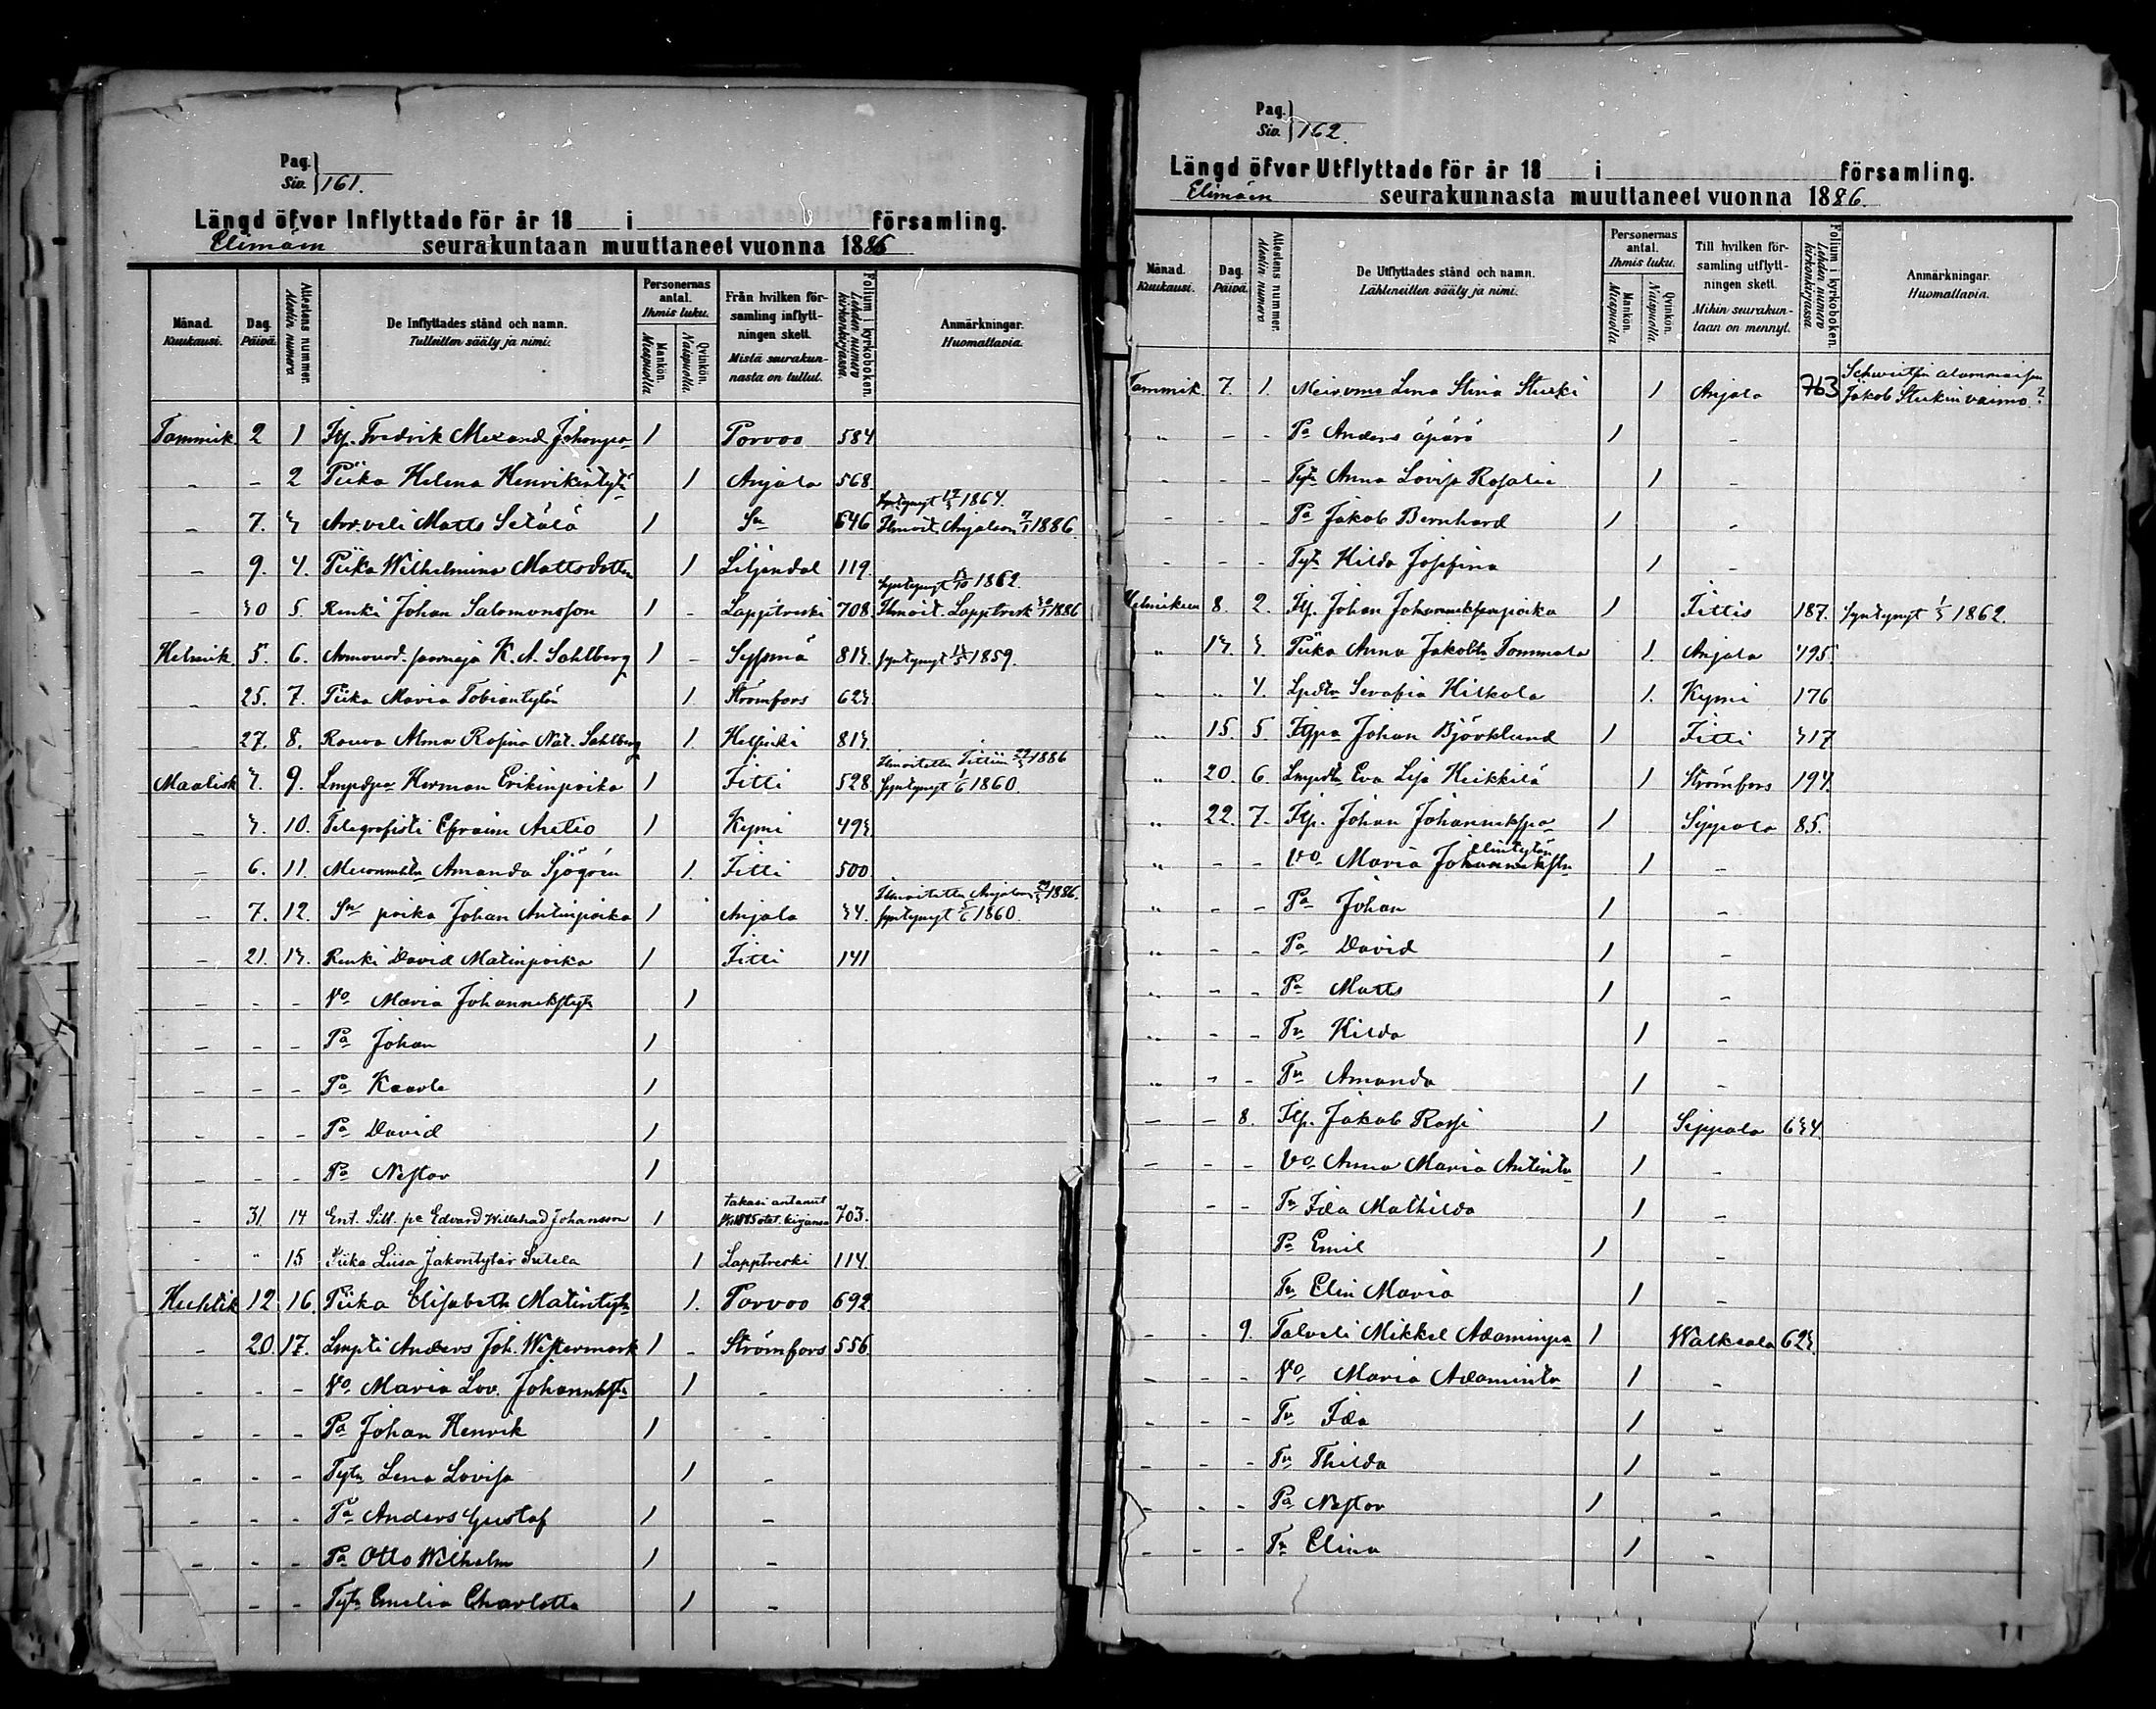 Pag.
Siv. 161.
Längd öfver Inflyttade för år 18 i församling.
Elimäen seurakuntaan muuttaneet vuonna 1886
Månad. Kuukausi. Dag. Päivä. Attestens nummer. Mestin numero De Inflyttades stånd och namn. Tulleitten sääty ja nimi. Personernas antal. Ihmis luku. Mankön. Miespuolia Qvinkön. Naispuolia. Från hvilken församling inflyttningen skett. Mistä seurakunnasta on tullut. Folium i kyrkoboken. Lehden numero kirkonkirjassa. Anmärkningar. Huomattavia.
Tammik. 2 1 Itp. Fredrik Alexand. Johanpa 1 Porvoo 584
- - 2 Piika Helena Henrikintytr 1 Anjala 568
- 7. 3 Avv. veli Matts Setälä 1 Sn 646 Syntynyt 1864. Ilmoit. Anjalaan 1886.
- 9. 4. Piika Wilhelmina Mattsdotter 1 Liljendal 119
- 30 5. Renki Johan Salomonsson 1 - Lapptreski 708 Syntynyt 1862. Ilmoit. Lapptresk 1886
Helmik 5. 6. K. A. Sahlberg 1 - Sysmä 813 syntynyt 1859.
- 25. 7. Piika Maria Tobiantytär 1 Strömfors 623
- 27. 8. Rouva Alma Rosina Nat. Sahlberg 1 Helsinki 813.
Maalisk 3. 9. Lmpdpa Herman Erikinpoika 1 Iitti 528 Ilmoitettu Iittiin 1886 Syntynyt 1860.
- 3. 10. Telegrafisti Efraim Aretio 1 Kymi 493
- 6. 11. Amanda Sjögrén 1. Iitti 500
- 7. 12. Sn poika Johan Antinpoika 1 Anjala 34. Ilmoitettu Anjalaan 1886. syntynyt 1860.
- 21. 13. Renki David Matinpoika 1 Iitti 141
- - - Vo Maria Johanneksty 1
- - - Pa Johan 1
- - - Pa Kaarle 1
- - - Pa David 1
- - - Pa Nestor 1
- 31 14 Ent. Sill. pa Edvard Willehad Johansson 1 takasi antanut 1885 otet. kirjansa 703.
- " 15 Piika Liisa Jakontytär Sutela 1 Lapptreski 114.
Huhtik 12 16. Piika Elisabeth Matintytr 1. Porvoo 692
- 20 17. Lmpti Anders Joh. Westermark 1 - Strömfors 556
- - - Vo Maria Lov. Johannekstr 1 -
- - - Pa Johan Henrik 1 -
- - - Tytr Lena Lovisa 1 -
- - - Pa Anders Gustaf 1 -
- - - Pa Otto Wilhelm 1 -
- - Tytr Emelia Charlotta 1 -
Pag.
Siv. 162.
Längd öfver Utflyttade för år 18 i församling.
Elimäen seurakunnasta muuttaneet vuonna 1886.
Månad. Kuukausi. Dag. Päivä. Attestens nummer. Mestin numero De Utflyttades stånd och namn. Lähteneitten sääty ja nimi. Personernas antal. Ihmis luku. Mankön. Miespuolia Qvinkön. Naispuolia. Till hvilken församling utflyttningen skett. Mihin seurakuntaan on mennyt. Folium i kyrkoboken. Lehden numero kirkonkirjassa. Anmärkningar. Huomattavia.
Tammik. 7. 1. Lena Stina Sturki 1 Anjala 763 Jakob Sturkin vaimo ?
" - - Pa Anders äpärä 1 -
- - - Tytr Anna Lovisa Rosalie 1 -
- - - Pa Jakob Bernhard 1 -
- - - Tytr Hilda Josefina 1 -
Helmikuu 8. 2. Itp. Johan Johanneksenpoika 1 Iittis 187. syntynyt 1862.
" 13. 3. Piika Anna Jakobtr Tommola 1. Anjala 495
" " 4. Lpdtr Serafia Hilkola 1. Kymi 176
" 15. 5 Itppa Johan Björklund 1 Iitti 317
" 20. 6. Lmpdtr Eva Lisa Heikkilä 1 Strömfors 194.
" 22. 7. Itp. Johan Johannekspa 1 Sippola 85.
" - - Vo Maria Johannekstr Elintytär 1 -
" - - Pa Johan 1 -
" - - Pa David 1 -
" - - Pa Matts 1 -
" - - Tr Hilda 1 -
" - - Tr Amanda 1 -
- - 8. Itp. Jakob Rossi 1 Sippola 634.
- - - Vo Anna Maria Antintr 1 -
- - Tr Ida Mathilda 1 -
Pa Emil 1 -
Tr Elin Maria 1 -
- - 9. Talveli Mikkel Adaminpa 1 Walkeala 623.
- - - Vo Maria Adamintr 1 -
- - - Tr Ida 1 -
- - - Tr Thilda 1 -
- - - Pa Nestor 1 -
- - - Tr Elina 1 -